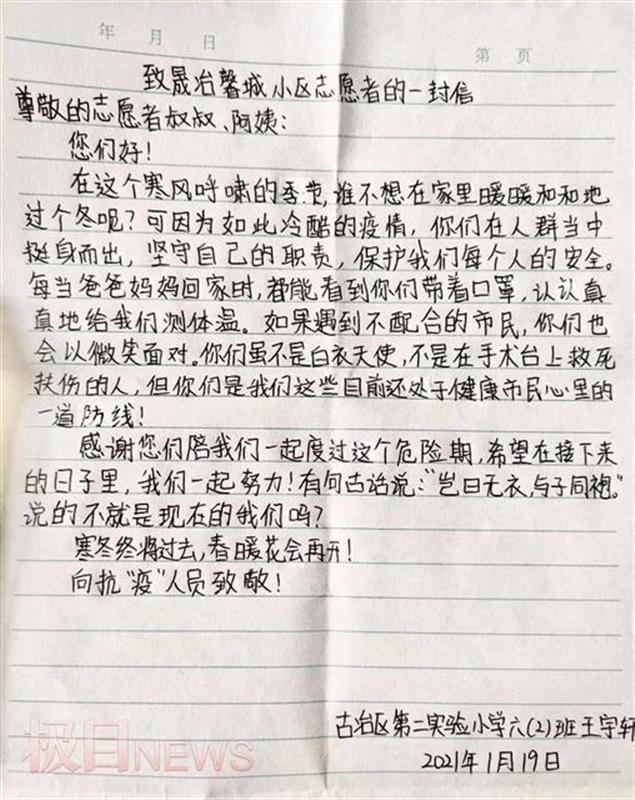 年 月 日
第 页
致晟冶馨城小区志愿者的一封信
尊敬的志愿者叔叔、阿姨：
您们好！
在这个寒风呼啸的季节,谁不想在家里暖暖和和地
过个冬呢？可因为如此冷酷的疫情，你们在人群当中
挺身而出，坚守自己的职责，保护我们每个人的安全。
每当爸爸妈妈回家时,都能看到你们带着口罩，认认真
真地给我们测体温。如果遇到不配合的市民，你们也
会以微笑面对。你们虽不是白衣天使，不是在手术台上救死
扶伤的人，但你们是我们这些目前还处于健康市民心里的
一道防线！
感谢您们陪我们一起度过这个危险期,希望在接下来
的日子里，我们一起努力！有句古话说：“岂曰无衣,与子同袍。”
说的不就是现在的我们吗？
寒冬终将过去,春暖花会再开！
向抗“疫”人员致敬！
古冶区第二实验小学六(2)班王宇轩
2021年1月19日
极目NEWS